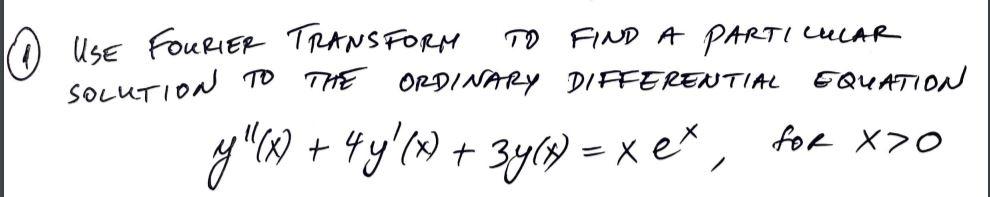 ① USE FOURIER TRANSFORM TO FIND A PARTICULAR
SOLUTION TO THE ORDINARY DIFFERENTIAL EQUATION
y''(x) + 4y'(x) + 3y(x) = x eˣ, for x>0